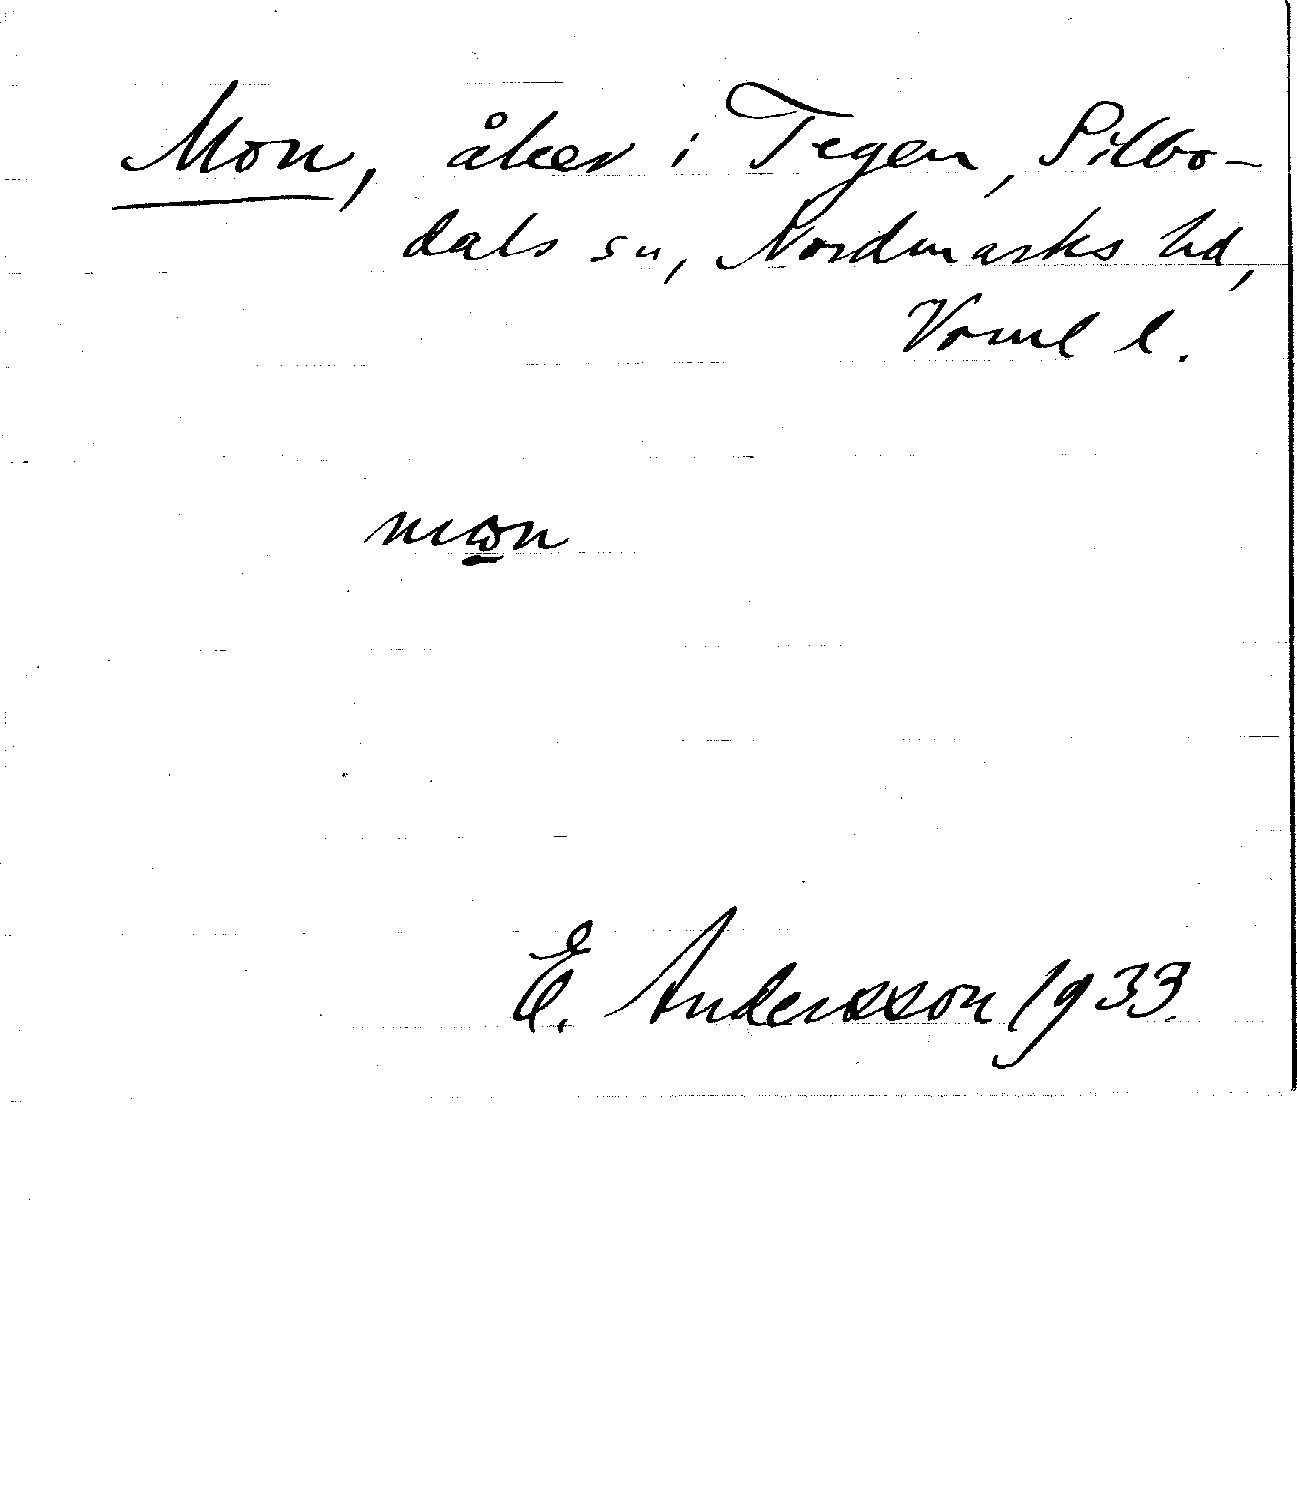 Mon, åker i Tegen, Silbo-
dals sn, Nordmarks hd,
Vrml l.
E. Andersson 1933.